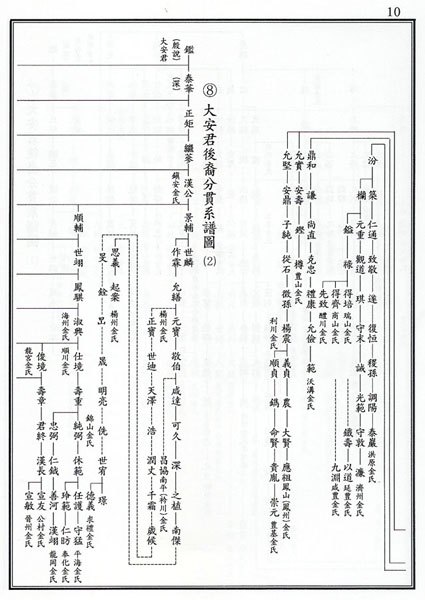 10
汾 築 仁通 致敬 遂 復恒 稷孫 調陽 泰巖 洪原金氏
欄 元重 觀道 琪 守末 誠 光範 守敦 濂 濟州金氏
鎰 祿 得培 瑞山金氏
鐵壽 以道 延豊金氏
得齊 商山金氏
九淵 咸豊金氏
先致 醴川金氏
鼎和 謙 尚直 克忠 禮康 允儉 範 沃溝金氏
允實 安壽 鏗 樽 豊山金氏
允堅 安鼎 子純 從石 微孫 楊震 義貞 農 大賢 應祖 鳳山(鳳州)金氏
利川金氏
順貞 鎷 命賢 貴胤 崇元 豊基金氏
⑧ 大安君後裔分貫系譜圖 (2)
鑑 泰華 正矩 繼蔘 漢公 景輔 世麟
(殷說)
大安君
(深)
鎮安金氏
作霖 允繕 元寶 敬伯 咸達 可久 深 之植 南傑
楊州金氏
昌協 南平(衿川)金氏
正寶 世迪 天澤 浩 潤丈 千霜 歲候
思義 起案 楊州金氏
旻 銓 呂 晟 明亮 侁 世宥 璟
德義 求禮金氏
順輔 世翊 鳳騏 淑興 仕境 壽重 純弼 休範 任護 守猛 平海金氏
海州金氏
順川金氏
錦山金氏
玲範 仁昉 奉化金氏
忠弼 仁鉞 善河 漢翊 龍岡金氏
俊境 壽章 君終 漢長 宣友 公村金氏
龍宮金氏
宣敏 晉州金氏